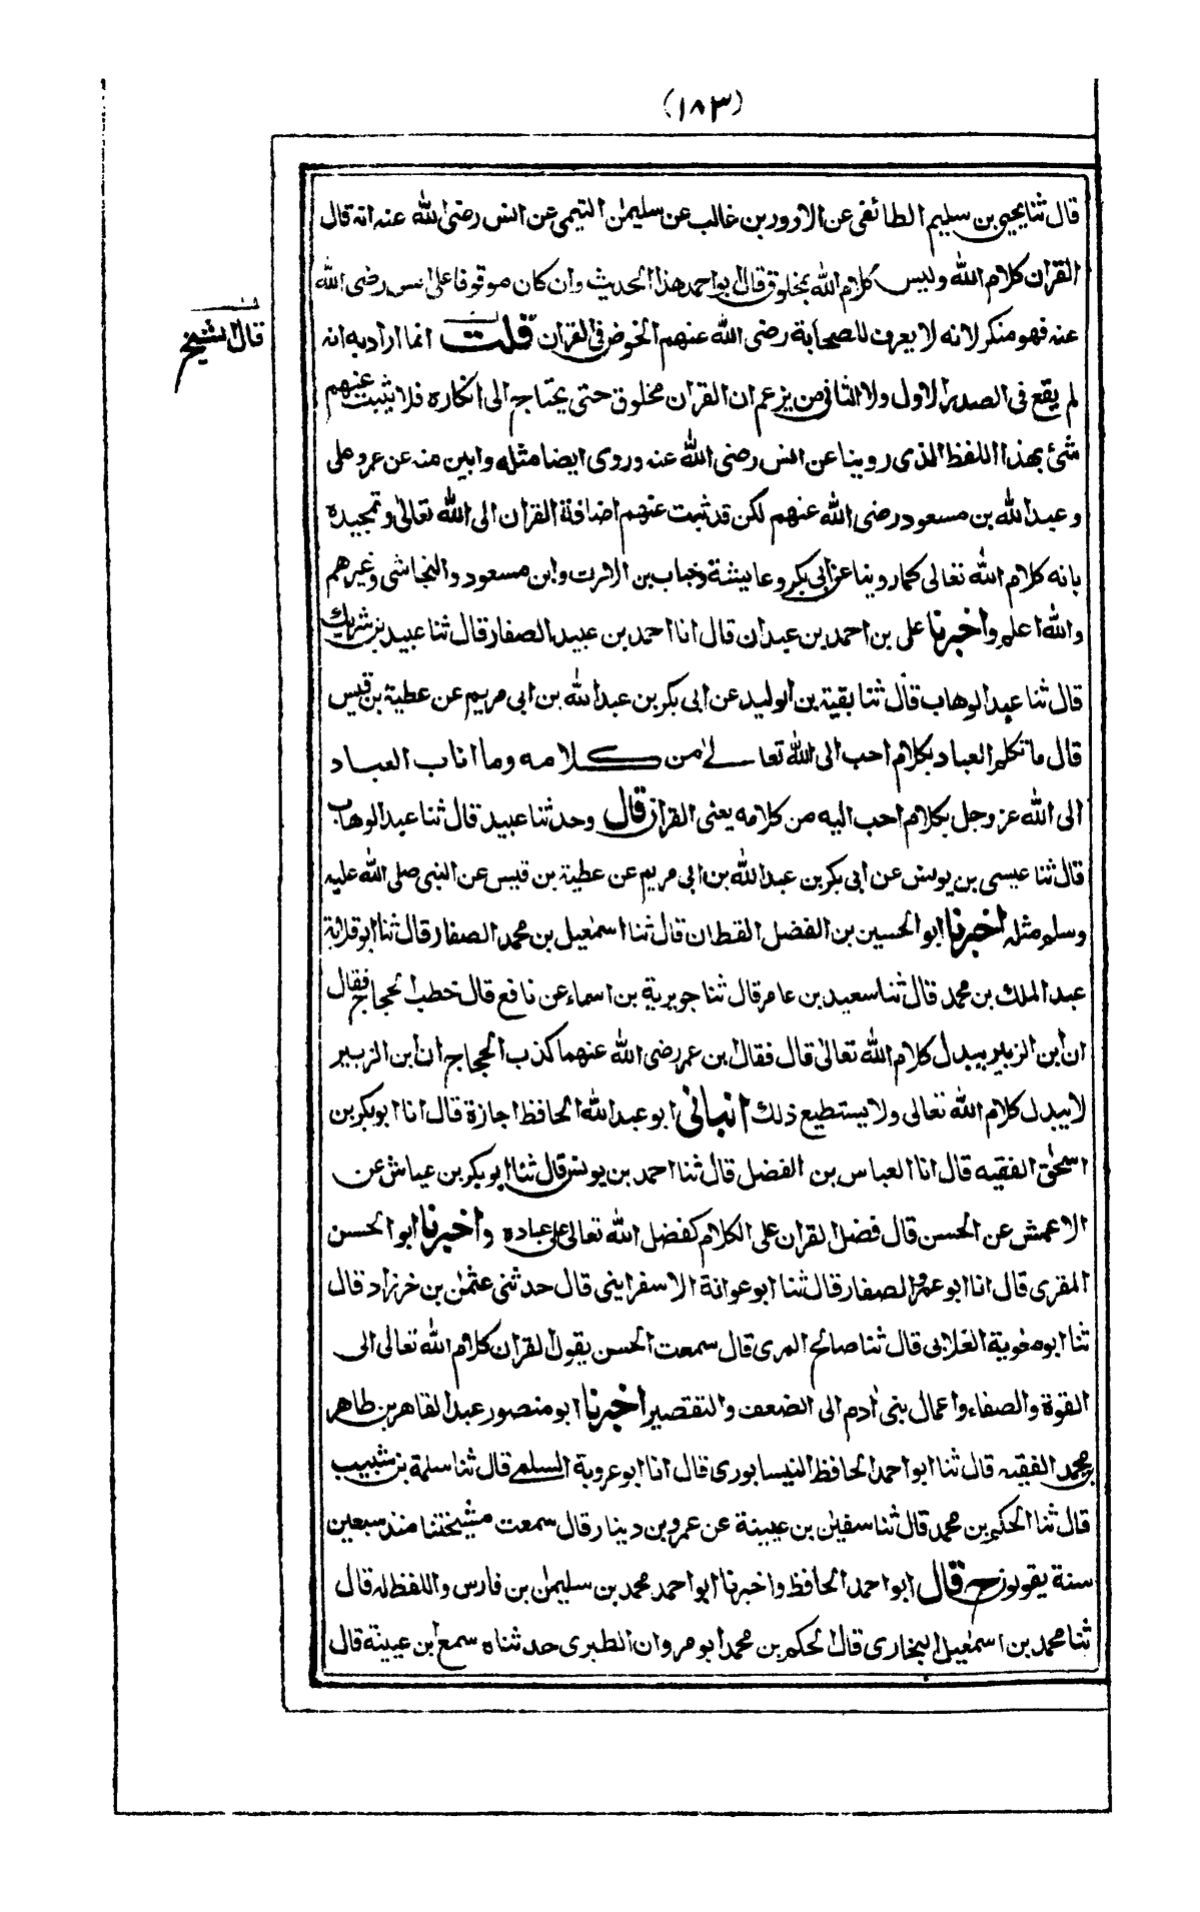 (١٨٣)
قال ثنا يحيى بن سليم الطائفى عن الازور بن غالب عن سليمن التيمى عن انس رضى الله عنه انه قال
القران كلام الله وليس كلام الله بمخلوق قال ابو احمد هذا الحديث وان كان موقوفا على انس رضى الله
عنه فهو منكر لانه لا يعرف للصحابة رضى الله عنهم الخوض فى القران قلت انما اراد به انه
قال الشيخ
لم يقع فى الصدر الاول ولا الثانى من يزعم ان القران مخلوق حتى يحتاج الى انكاره فلا يثبت عنهم
شئ بهذا اللفظ الذى روينا عن انس رضى الله عنه وروى ايضا مثله وابين منه عن عمر وعلى
وعبد الله بن مسعود رضى الله عنهم لكن قد ثبت عنهم اضافة القران الى الله تعالى وتمجيده
بانه كلام الله تعالى كما روينا عن ابى بكر وعايشة وخباب بن الارت وابن مسعود والنجاشى وغيرهم
والله اعلم واخبرنا على بن احمد بن عبدان قال انا احمد بن عبيد الصفار قال ثنا عبيد بن شريك
قال ثنا عبد الوهاب قال ثنا بقية بن الوليد عن ابى بكر بن عبد الله بن ابى مريم عن عطية بن قيس
قال ما تكلم العباد بكلام احب الى الله تعالى من كلامه وما اناب العباد
الى الله عز وجل بكلام احب اليه من كلامه يعنى القران قال وحدثنا عبيد قال ثنا عبد الوهاب
قال ثنا عيسى بن يونس عن ابى بكر بن عبد الله بن ابى مريم عن عطية بن قيس عن النبى صلى الله عليه
وسلم مثله اخبرنا ابو الحسين بن الفضل القطان قال ثنا اسمعيل بن محمد الصفار قال ثنا ابو قلابة
عبد الملك بن محمد قال ثنا سعيد بن عامر قال ثنا جويرية بن اسماء عن نافع قال خطب الحجاج فقال
ان ابن الزبير يبدل كلام الله تعالى قال فقال بن عمر رضى الله عنهما كذب الحجاج ان ابن الزبير
لا يبدل كلام الله تعالى ولا يستطيع ذلك انبانى ابو عبد الله الحافظ اجازة قال انا ابو بكر بن
اسحق الفقيه قال انا العباس بن الفضل قال ثنا احمد بن يونس قال ثنا ابو بكر بن عياش عن
الاعمش عن الحسن قال فضل القران على الكلام كفضل الله تعالى على عباده واخبرنا ابو الحسن
المقرى قال انا ابو عمرو الصفار قال ثنا ابو عوانة الاسفراينى قال حدثنى عثمن بن خرزاد قال
ثنا ابو معوية الغلابى قال ثنا صالح المرى قال سمعت الحسن يقول القران كلام الله تعالى الى
القوة والصفاء واعمال بنى ادم الى الضعف والتقصير اخبرنا ابو منصور عبد القاهر بن طاهر
بن محمد الفقيه قال ثنا ابو احمد الحافظ النيسابورى قال انا ابو عروبة السلمى قال ثنا سلمة بن شبيب
قال ثنا الحكم بن محمد قال ثنا سفين بن عيينة عن عمرو بن دينار قال سمعت مشيختنا منذ سبعين
سنة يقولون ح قال ابو احمد الحافظ واخبرنا ابو احمد محمد بن سليمن بن فارس واللفظ له قال
ثنا محمد بن اسمعيل البخارى قال الحكم بن محمد ابو مروان الطبرى حدثناه سمع ابن عيينة قال